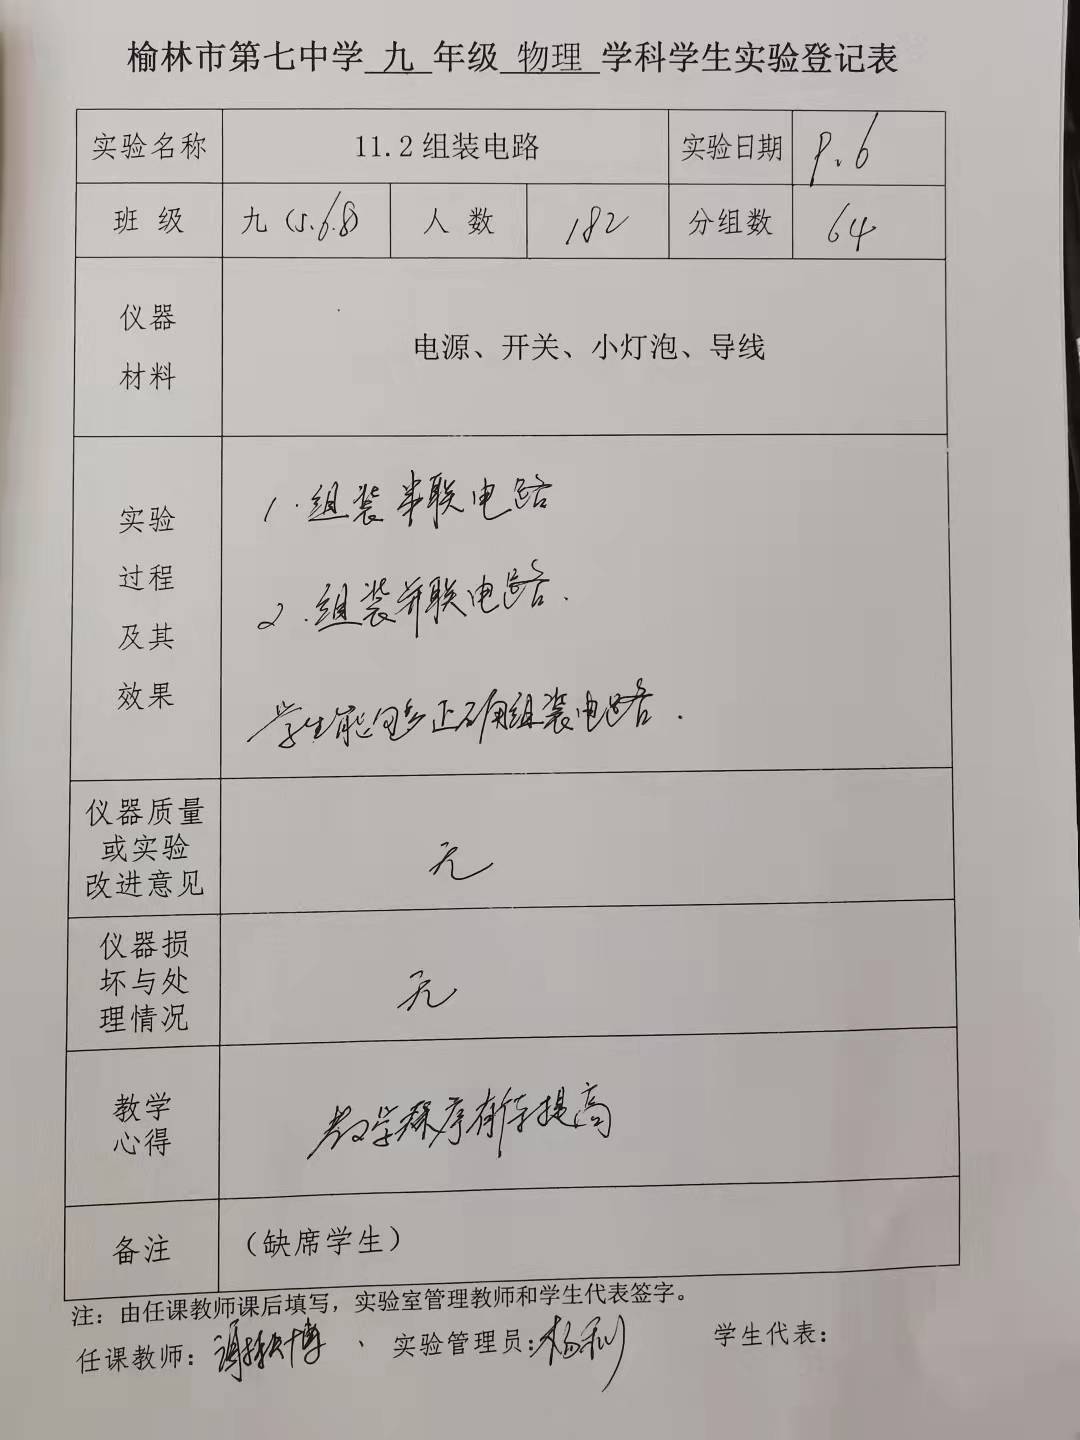 榆林市第七中学 九 年级 物理 学科学生实验登记表
实验名称 11.2组装电路 实验日期 9.6
班 级 九(5.6.8) 人 数 182 分组数 64
仪器
材料
电源、开关、小灯泡、导线
实验
过程
及其
效果
1.组装串联电路
2.组装并联电路.
学生能够正确组装电路.
仪器质量
或实验
改进意见
无
仪器损
坏与处
理情况
无
教学
心得
教学秩序有待提高
备注 (缺席学生)
注：由任课教师课后填写，实验室管理教师和学生代表签字。
任课教师: 、 实验管理员:杨利 学生代表: